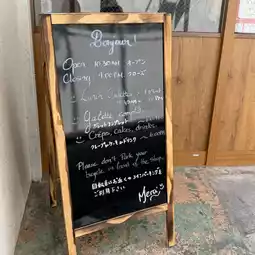 Bonjour!
Open 11:30AM オープン
Closing 4:00PM クローズ
Galette complète
Crêpe, cakes, drinks
クレープ、ケーキ、ドリンク
Please don't Park your
bicycle in front of the shop.
自転車はお近くのコインパーキングを
ご利用下さい
Merci